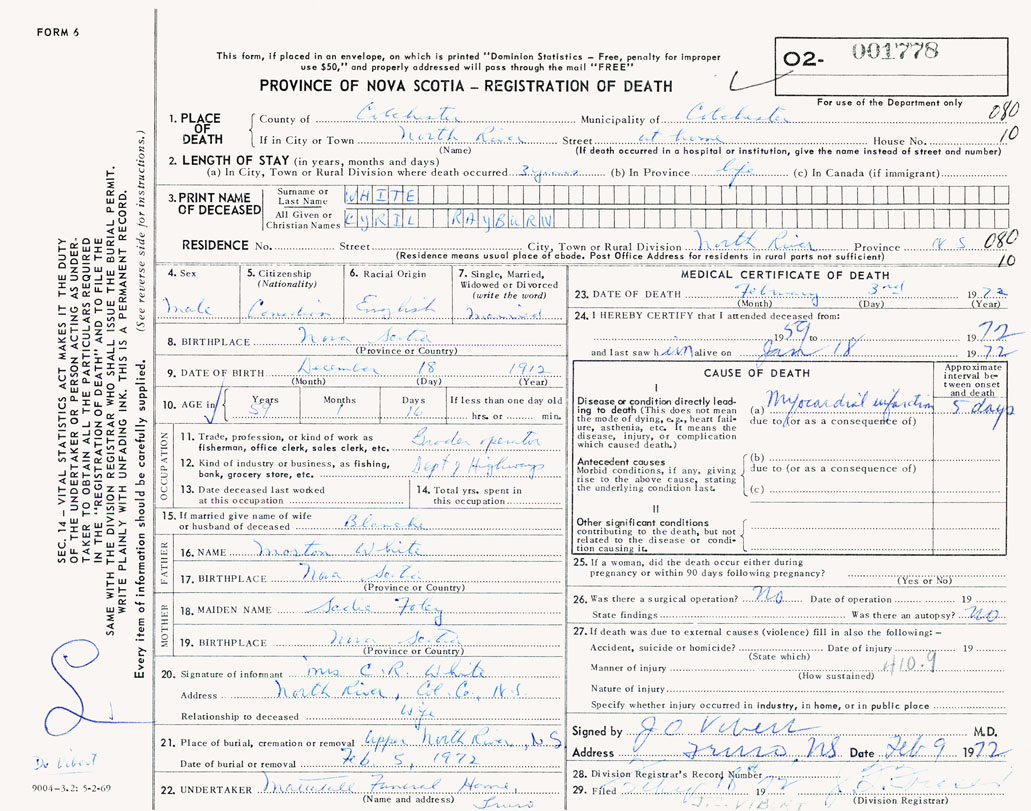 FORM 6
This form, if placed in an envelope, on which is printed "Dominion Statistics – Free, penalty for improper
use $50," and properly addressed will pass through the mail "FREE"
O2- 001778
For use of the Department only
PROVINCE OF NOVA SCOTIA – REGISTRATION OF DEATH
1. PLACE OF DEATH
County of Colchester Municipality of Colchester 080
If in City or Town North River Street at home House No. 10
(Name) (If death occurred in a hospital or institution, give the name instead of street and number)
2. LENGTH OF STAY (in years, months and days)
(a) In City, Town or Rural Division where death occurred 3 years (b) In Province life (c) In Canada (if immigrant)
3. PRINT NAME OF DECEASED
Surname or Last Name WHITE
All Given or Christian Names CYRIL RAYBURN
RESIDENCE No. Street City, Town or Rural Division North River Province N S 080
(Residence means usual place of abode. Post Office Address for residents in rural parts not sufficient) 10
4. Sex
Male
5. Citizenship
(Nationality)
Canadian
6. Racial Origin
English
7. Single, Married,
Widowed or Divorced
(write the word)
Married
8. BIRTHPLACE Nova Scotia
(Province or Country)
9. DATE OF BIRTH December 18 1912
(Month) (Day) (Year)
10. AGE in
Years Months Days If less than one day old
59 1 16 hrs. or min.
OCCUPATION
11. Trade, profession, or kind of work as
fisherman, office clerk, sales clerk, etc. Grader operator
12. Kind of industry or business, as fishing,
bank, grocery store, etc. Dept of Highways
13. Date deceased last worked
at this occupation
14. Total yrs. spent in
this occupation
15. If married give name of wife
or husband of deceased Blanche
FATHER
16. NAME Morton White
17. BIRTHPLACE Nova Scotia
(Province or Country)
MOTHER
18. MAIDEN NAME Sadie Foley
19. BIRTHPLACE Nova Scotia
(Province or Country)
20. Signature of informant Mrs C. R. White
Address North River, Col. Co., N.S.
Relationship to deceased Wife
21. Place of burial, cremation or removal Upper North River, N.S.
Date of burial or removal Feb. 5, 1972
22. UNDERTAKER Funeral Home,
(Name and address) Truro
MEDICAL CERTIFICATE OF DEATH
23. DATE OF DEATH February 3rd 1972
(Month) (Day) (Year)
24. I HEREBY CERTIFY that I attended deceased from:
1959 to 1972
and last saw him alive on Jan 18 1972
CAUSE OF DEATH
Approximate
interval be-
tween onset
and death
I
Disease or condition directly lead-
ing to death (This does not mean
the mode of dying, e.g., heart fail-
ure, asthenia, etc. It means the
disease, injury, or complication
which caused death.)
(a) Myocardial infarction 5 days
due to (or as a consequence of)
Antecedent causes
Morbid conditions, if any, giving
rise to the above cause, stating
the underlying condition last.
(b)
due to (or as a consequence of)
(c)
II
Other significant conditions
contributing to the death, but not
related to the disease or condi-
tion causing it.
25. If a woman, did the death occur either during
pregnancy or within 90 days following pregnancy?
(Yes or No)
26. Was there a surgical operation? No Date of operation 19
State findings Was there an autopsy? No
27. If death was due to external causes (violence) fill in also the following: –
Accident, suicide or homicide? Date of injury 19
(State which)
Manner of injury 410.9
(How sustained)
Nature of injury
Specify whether injury occurred in industry, in home, or in public place
Signed by J O Vibert M.D.
Address Truro, NS. Date Feb 9 1972
28. Division Registrar's Record Number
29. Filed 19 72
(Division Registrar)
J.O. VIBERT
SEC. 14 – VITAL STATISTICS ACT MAKES IT THE DUTY
OF THE UNDERTAKER OR PERSON ACTING AS UNDER-
TAKER TO OBTAIN ALL THE PARTICULARS REQUIRED
IN THE "REGISTRATION OF DEATH" AND TO FILE THE
SAME WITH THE DIVISION REGISTRAR WHO SHALL ISSUE THE BURIAL PERMIT.
WRITE PLAINLY WITH UNFADING INK. THIS IS A PERMANENT RECORD.
Every item of information should be carefully supplied. (See reverse side for instructions.)
Dr Vibert
9004-3.2: 5-2-69